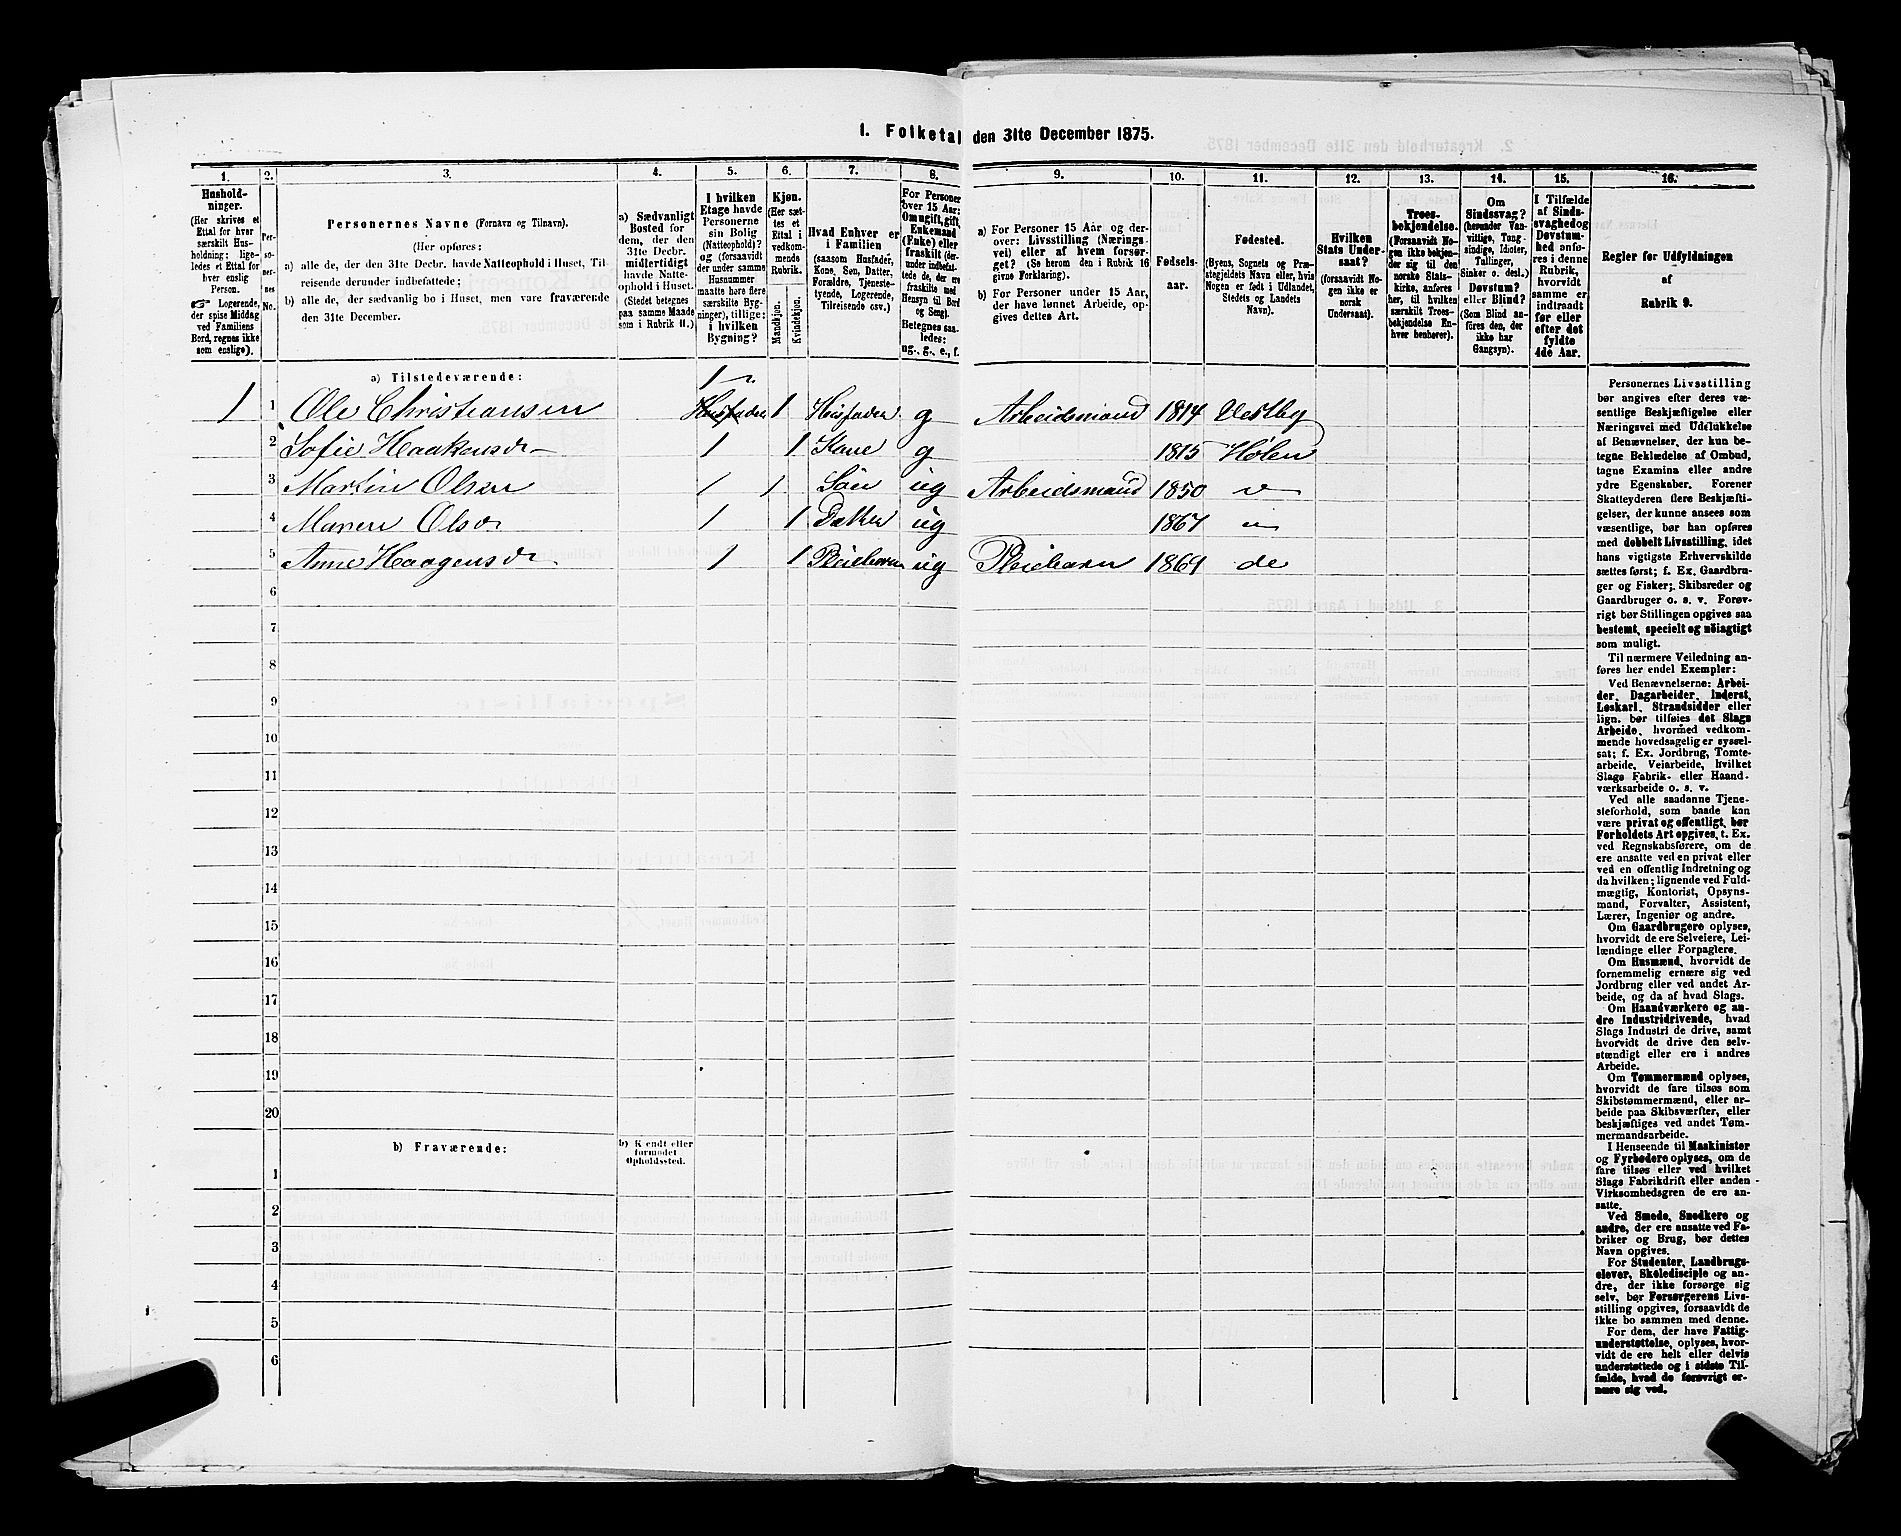 1. Folketal den 31te December 1875.
1. 2. 3. 4. 5. 6. 7. 8. 9. 10. 11. 12. 13. 14. 15. 16.
Hushold-
ninger.
(Her skrives et
Ettal for hver
særskilt Hus-
holdning; lige-
ledes et Ettal for
hver enslig
Person.
☞ Logerende,
der spise Middag
ved Familiens
Bord, regnes ikke
som enslige).
Per-
so-
ner-
nes
No.
Personernes Navne (Fornavn og Tilnavn).
(Her opføres:
a) alle de, der den 31te Decbr. havde Natteophold i Huset, Til-
reisende derunder indbefattede;
b) alle de, der sædvanlig bo i Huset, men vare fraværende
den 31te December.
a) Sædvanligt
Bosted for
dem, der den
31te Decbr.
midlertidigt
havde Natte-
ophold i Huset.
(Stedet betegnes
paa samme Maade
som i Rubrik 11.)
I hvilken
Etage havde
Personerne
sin Bolig
(Natteophold)?
og (forsaavidt
der under samme
Husnummer
maatte høre flere
særskilte Byg-
ninger), tillige:
i hvilken
Bygning?
Kjøn.
(Her sæt-
tes et
Ettal i
vedkom-
mende
Rubrik.
Mandkjøn.
Kvindekjøn.
Hvad Enhver er
i Familien
(saasom Husfader,
Kone, Søn, Datter,
Forældre, Tjeneste-
tyende, Logerende,
Tilreisende osv.)
For Personer
over 15 Aar:
Om ugift, gift,
Enkemand
(Enke) eller
fraskilt (der-
under indbefat-
tede de, der ere
fraskilte med
Hensyn til Bord
og Seng).
Betegnes saa-
ledes:
ug., g., e., f.
a) For Personer 15 Aar og der-
over: Livsstilling (Nærings-
vei) eller af hvem forsør-
get? (Se herom den i Rubrik 16
givne Forklaring).
b) For Personer under 15 Aar,
der have lønnet Arbeide, op-
gives dettes Art.
Fødsels-
aar.
Fødested.
(Byens, Sognets og Præ-
stegjeldets Navn eller, hvis
Nogen er født i Udlandet,
Stedets og Landets
Navn).
Hvilken
Stats Under-
saat?
(forsaavidt No-
gen ikke er
norsk
Undersaat).
Troes-
bekjendelse.
(Forsaavidt No-
gen ikke bekjen-
der sig til den
norske Stats-
kirke, anføres
her, til hvilken
særskilt Troes-
bekjendelse En-
hver henhører).
Om
Sindssvag?
(herunder Van-
vittige, Tung-
sindige, Idioter,
Tullinger,
Sinker o. desl.)
Døvstum?
eller Blind?
(Som Blind an-
føres den, der
ikke har
Gangsyn).
I Tilfælde
af Sinds-
svaghed og
Døvstum-
hed anfø-
res i denne
Rubrik,
hvorvidt
samme er
indtraadt
før eller
efter det
fyldte
4de Aar.
Regler for Udfyldningen
af
Rubrik 9.
a) Tilstedeværende:
1
1 1 Ole Christiansen Husfader 1 Husfader g Arbeidsmand 1814 Vestby
2 Sofie Haakensdr 1 1 Kone g 1815 Hølen
3 Martin Olsen 1 1 Søn ug Arbeidsmand 1850
4 Maren Olsdr 1 1 Datter ug 1867
5 Anne Haagensdr 1 1 Pleiebarn ug Pleiebarn 1864 do
6
7
8
9
10
11
12
13
14
15
16
17
18
19
20
b) Fraværende:
b) Kjendt eller
formodet
Opholdssted.
1
2
3
4
5
6
Personernes Livsstilling
bør angives efter deres væ-
sentlige Beskjæftigelse eller
Næringsvei med Udelukkelse
af Benævnelser, der kun be-
tegne Beklædelse af Ombud,
tagne Examina eller andre
ydre Egenskaber. Forener
Skatteyderen flere Beskjæfti-
gelser, der kunne ansees som
væsentlige, bør han opføres
med dobbelt Livsstilling, idet
hans vigtigste Erhvervskilde
sættes først; f. Ex. Gaardbru-
ger og Fisker; Skibsreder og
Gaardbruger o. s. v. Forøv-
rigt bør Stillingen opgives saa
bestemt, specielt og nøiagtigt
som muligt.
Til nærmere Veiledning an-
føres her endel Exempler:
Ved Benævnelserne: Arbei-
der, Dagarbeider, Inderst,
Løskarl, Strandsidder eller
lign. bør tilføies det Slags
Arbeide, hvormed vedkom-
mende hovedsagelig er syssel-
sat; f. Ex. Jordbrug, Tomte-
arbeide, Veiarbeide, hvilket
Slags Fabrik- eller Haand-
værksarbeide o. s. v.
Ved alle saadanne Tjene-
steforhold, som baade kan
være privat og offentligt, bør
Forholdets Art opgives, t. Ex.
ved Regnskabsførere, om de
ere ansatte ved en privat eller
ved en offentlig Indretning og
da hvilken; lignende ved Fuld-
mægtig, Kontorist, Opsyns-
mand, Forvalter, Assistent,
Lærer, Ingeniør og andre.
Om Gaardbrugere oplyses,
hvorvidt de ere Selveiere, Lei-
lændinge eller Forpagtere.
Om Husmænd, hvorvidt de
fornemmelig ernære sig ved
Jordbrug eller ved andet Ar-
beide, og da af hvad Slags.
Om Haandværkere og an-
dre Industridrivende, hvad
Slags Industri de drive, samt
hvorvidt de drive den selv-
stændigt eller ere i andres
Arbeide.
Om Tømmermænd oplyses,
hvorvidt de fare tilsøs som
Skibstømmermænd, eller ar-
beide paa Skibsværfter, eller
beskjæftiges ved andet Tøm-
mermandsarbeide.
I Henseende til Maskinister
og Fyrbødere oplyses, om de
fare tilsøs eller ved hvilket
Slags Fabrikdrift eller anden
Virksomhedsgren de ere an-
satte.
Ved Smede, Snedkere og
andre, der ere ansatte ved Fa-
briker og Brug, bør dettes
Navn opgives.
For Studenter, Landbrugs-
elever, Skoledisciple og an-
dre, der ikke forsørge sig
selv, bør Forsørgerens Livs-
stilling opgives, forsaavidt de
ikke bo sammen med denne.
For dem, der have Fattig-
understøttelse, oplyses, hvor-
vidt de ere helt eller delvis
understøttede og i sidste Til-
fælde, hvad de forøvrigt er-
nære sig ved.